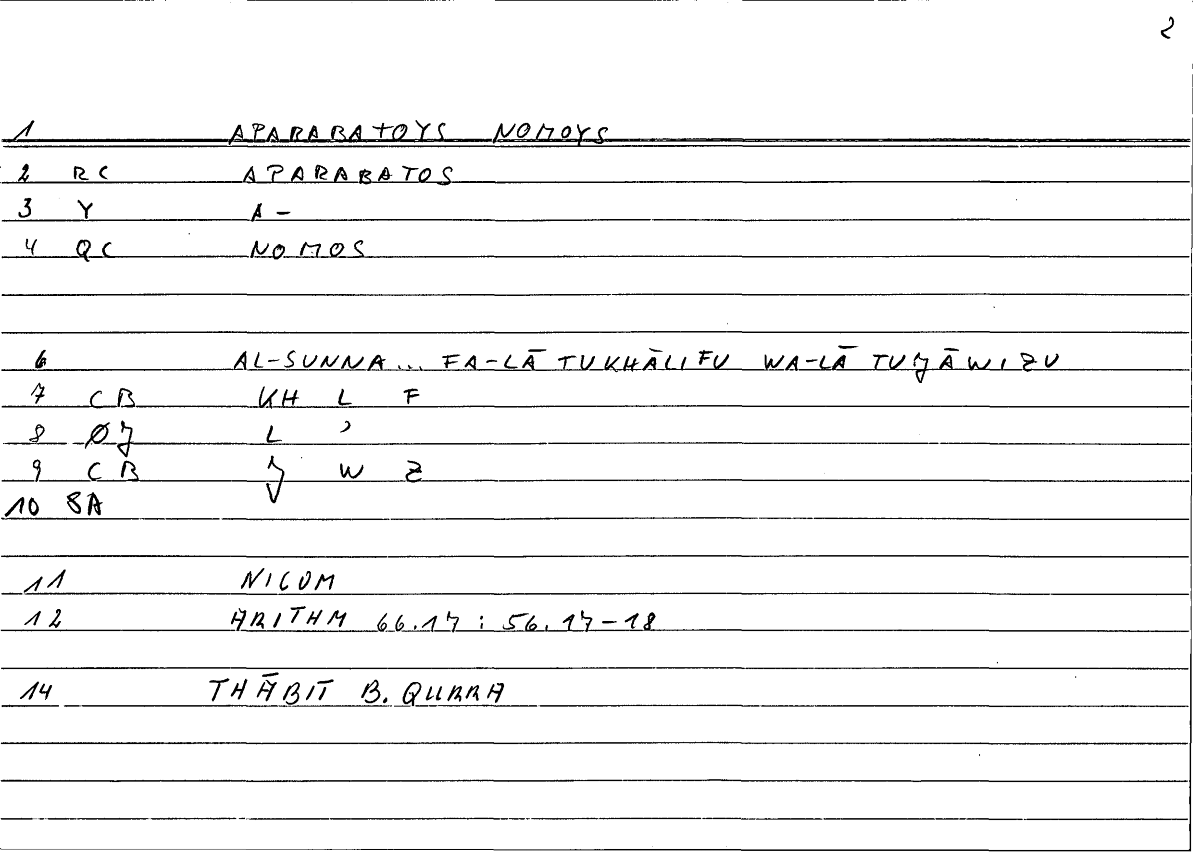 2
1 APARABATOYS NOMOYS
2 RC APARABATOS
3 Y A-
4 QC NOMOS
6 AL-SUNNA... FA-LĀ TUKHĀLIFU WA-LĀ TUJĀWIZU
7 CB KH L F
8 ØJ L ʾ
9 CB J W Z
10 8A
11 NICOM
12 ARITHM 66.17 : 56.17-18
14 THĀBIT B. QURRA